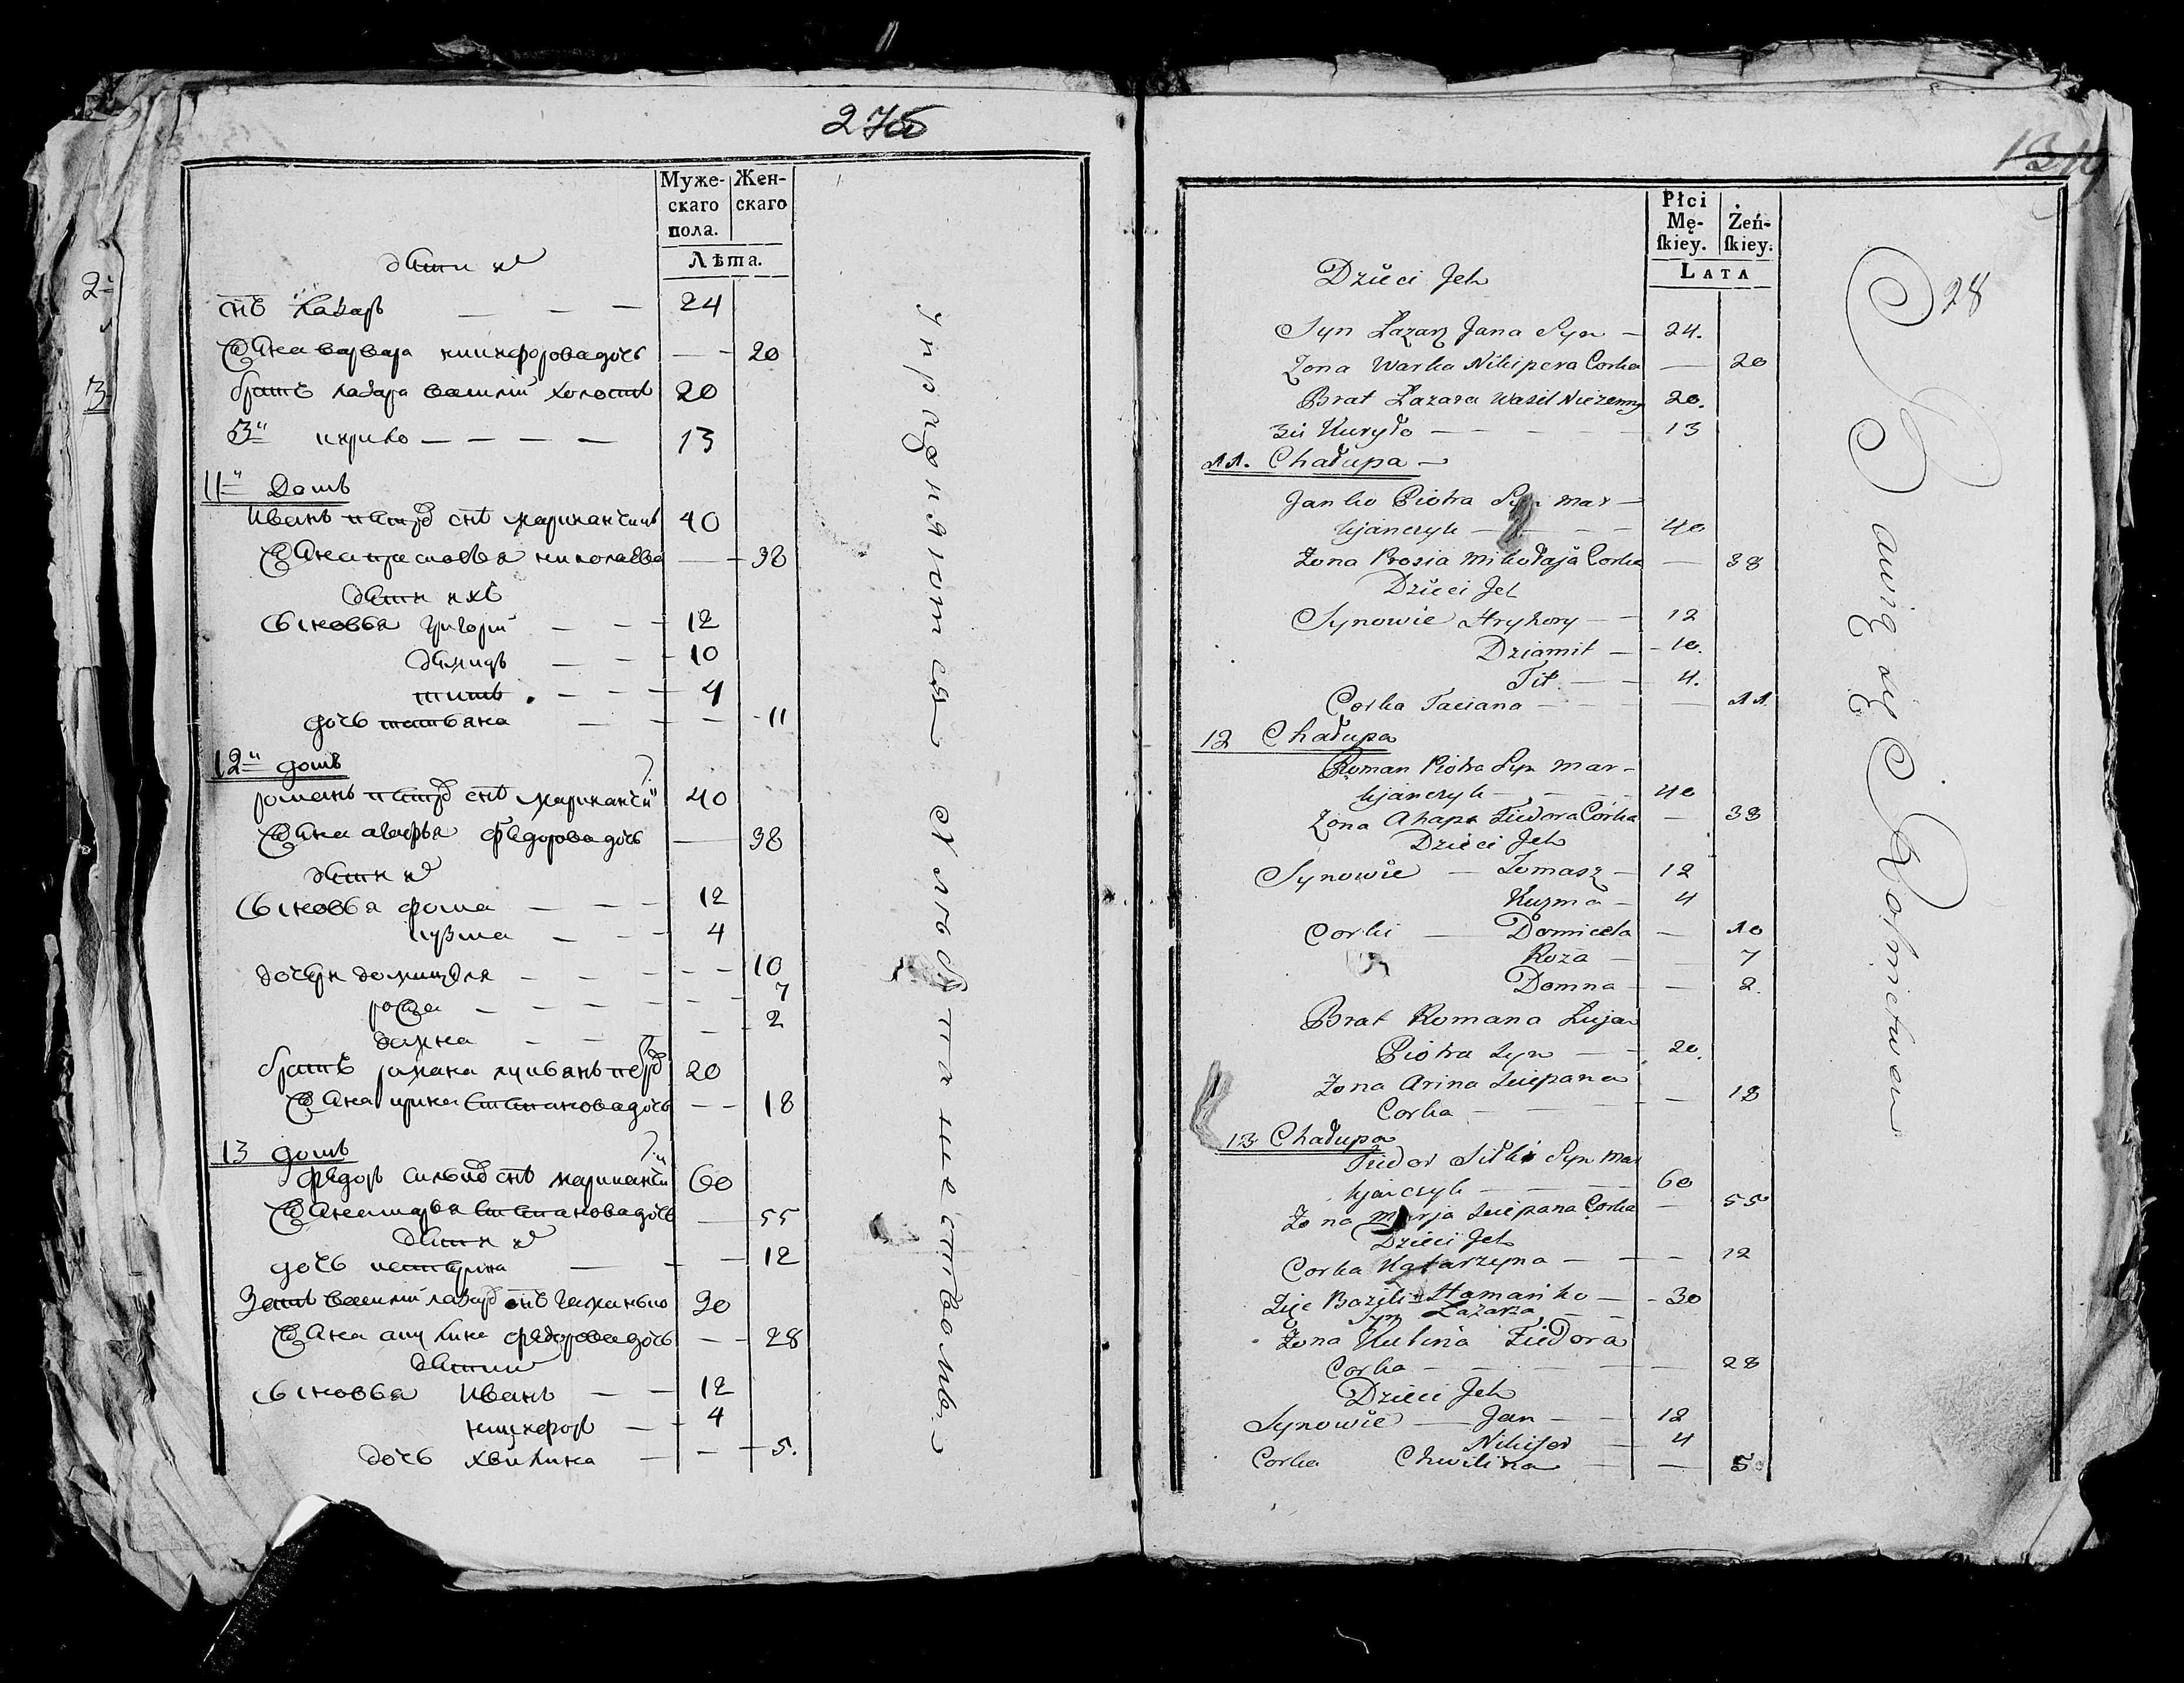 275
Муже-
скаго
пола.
Жен-
скаго
Лѣта.
дѣти ихъ
2й снъ Лазарь — — — 24
Жена варвара никифорова дочь — 20
братъ лазара василій холостъ 20
3й кирило — — — — 13
11й Домъ
Иванъ петра снъ маркианчикъ 40
Жена прасковья николаева — 38
дѣти ихъ
сыновья григорій — — 12
демидъ — — 10
титъ — — — 4
дочь татьяна — — — 11
12й домъ
романъ петра снъ маркианчи 40
Жена агафья федорова дочь — 38
дѣти ихъ
сыновья фома — — — 12
кузма — — — 4
дочери домицеля — — — 10
рожа — — — 7
домна — — — 2
братъ романа лукьянъ петра 20
Жена ирина степанова дочь — 18
13 домъ
федоръ сильки снъ маркианчи 60
Жена марья степанова дочь — 55
дѣти ихъ
дочь катерина — — — 12
Зять василій лазара снъ гаманько 30
Жена акулина федорова дочь — 28
дѣти ихъ
сыновья Иванъ — — 12
никифоръ — 4
дочь хвилина — — 5.
упражняются Хлебопашествомъ
1319
28
Płci
Mę-
skiey.
Żeń-
skiey.
LATA
Dzieci Jch
Syn Łazarz Jana Syn — 24.
Żona Warka Nikipera Corka — 20
Brat Łazara Wasil Nieżenny 20.
3ci Kuryło — — — — 13
11. Chałupa —
Janko Piotra Syn Mar-
kjanczyk — — — 40
Żona Prosia Mikołaja Corka — 38
Dzieci Jch
Synowie Hryhory — — 12
Dziamit — 10.
Tit — — 4.
Corka Taciana — — — 11.
12 Chałupa
Roman Piotra Syn Mar-
kjanczyk — — — 40
Żona Ahapa Fiedora Córka — 38
Dzieci Jch
Synowie — Tomasz — 12
Kuzma — 4
Corki — Domicela — 10
Roża — — 7
Domna — — 2.
Brat Romana Łukjan
Piotra Syn — — 20.
Żona Arina Sciepana
Corka — — — — 18
13 Chałupa
Fiedor Silki Syn Mar
kjanczyk — — — 60
Żona Marja Sciepana Corka — 55
Dzieci Jch
Corka Katarzyna — — — 12
Zięc Bazyli Hamańko — 30
Syn Łazarza — —
Żona Kulina Fiedora
Corka — — — — 28
Dzieci Jch
Synowie — Jan — — 12
Nikifor — 4
Corka Chwilina — — 5
Bawią się Rolnictwem